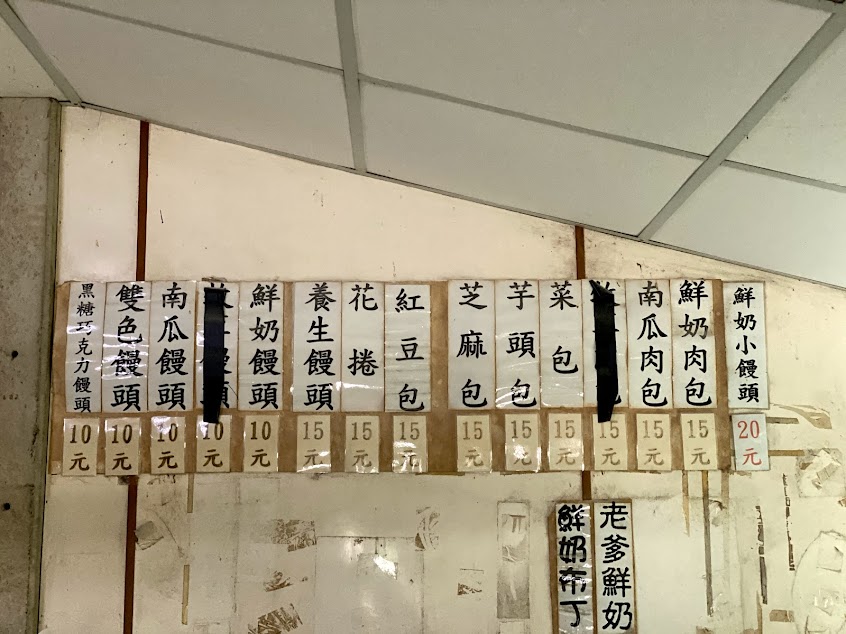 鮮奶小饅頭
20元
鮮奶肉包
15元
南瓜肉包
15元
15元
菜包
15元
芋頭包
15元
芝麻包
15元
紅豆包
15元
花捲
15元
養生饅頭
15元
鮮奶饅頭
10元
10元
南瓜饅頭
10元
雙色饅頭
10元
黑糖巧克力饅頭
10元
老爹鮮奶
鮮奶布丁